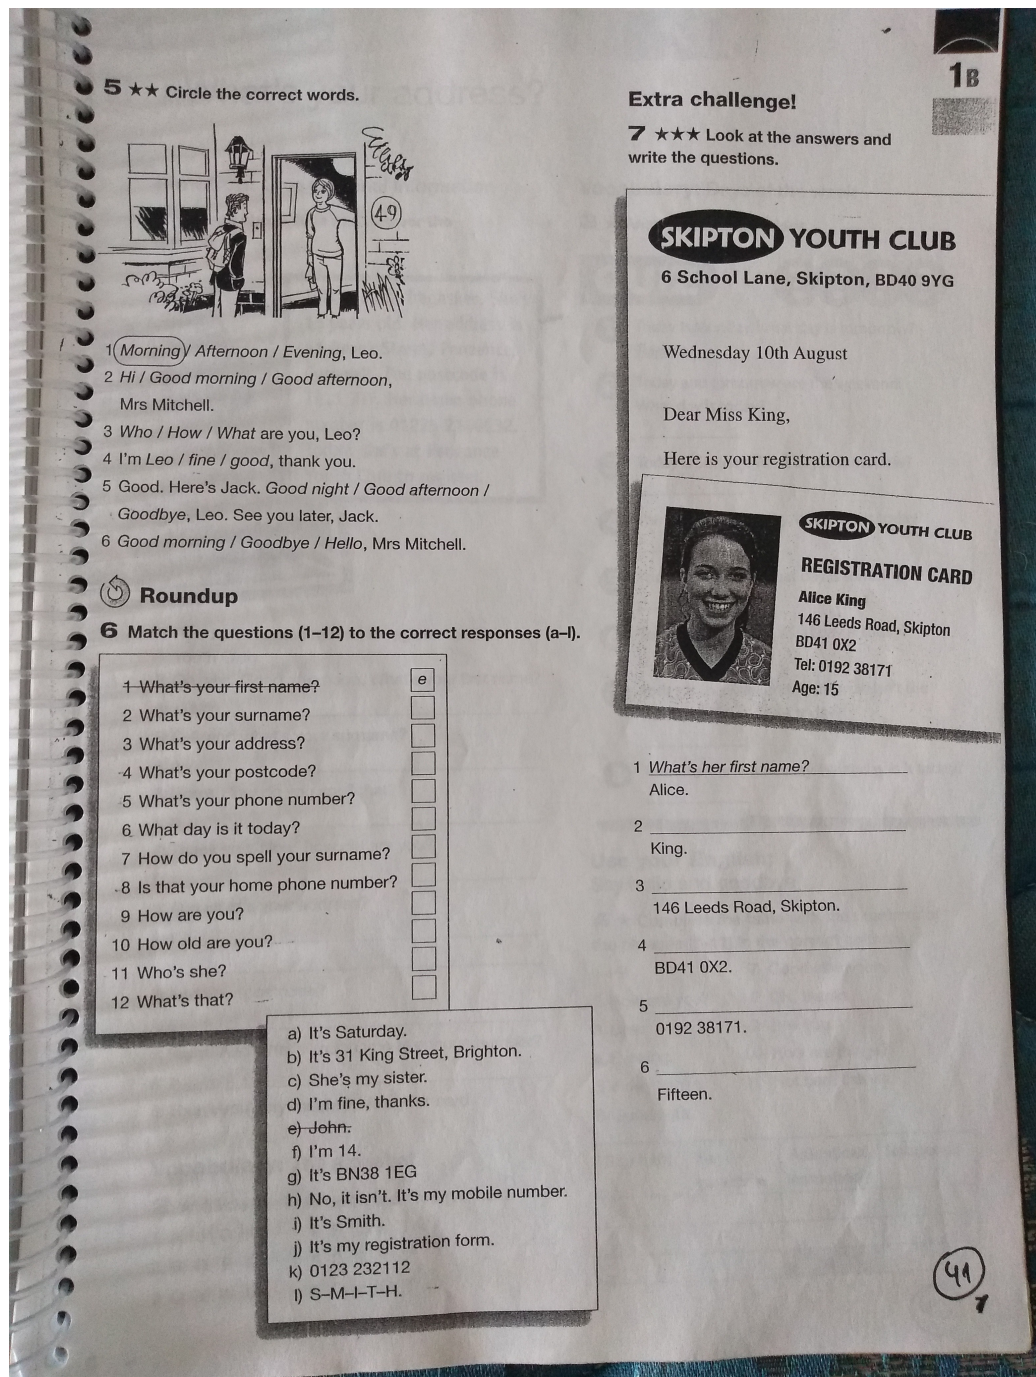 1B
5 ★★ Circle the correct words.
49
1 Morning / Afternoon / Evening, Leo.
2 Hi / Good morning / Good afternoon,
Mrs Mitchell.
3 Who / How / What are you, Leo?
4 I'm Leo / fine / good, thank you.
5 Good. Here's Jack. Good night / Good afternoon /
Goodbye, Leo. See you later, Jack.
6 Good morning / Goodbye / Hello, Mrs Mitchell.
Roundup
6 Match the questions (1–12) to the correct responses (a–l).
1 What's your first name? e
2 What's your surname?
3 What's your address?
4 What's your postcode?
5 What's your phone number?
6 What day is it today?
7 How do you spell your surname?
8 Is that your home phone number?
9 How are you?
10 How old are you?
11 Who's she?
12 What's that?
a) It's Saturday.
b) It's 31 King Street, Brighton.
c) She's my sister.
d) I'm fine, thanks.
e) John.
f) I'm 14.
g) It's BN38 1EG
h) No, it isn't. It's my mobile number.
i) It's Smith.
j) It's my registration form.
k) 0123 232112
l) S–M–I–T–H.
Extra challenge!
7 ★★★ Look at the answers and
write the questions.
SKIPTON YOUTH CLUB
6 School Lane, Skipton, BD40 9YG
Wednesday 10th August
Dear Miss King,
Here is your registration card.
SKIPTON YOUTH CLUB
REGISTRATION CARD
Alice King
146 Leeds Road, Skipton
BD41 0X2
Tel: 0192 38171
Age: 15
1 What's her first name?
Alice.
2
King.
3
146 Leeds Road, Skipton.
4
BD41 0X2.
5
0192 38171.
6
Fifteen.
41